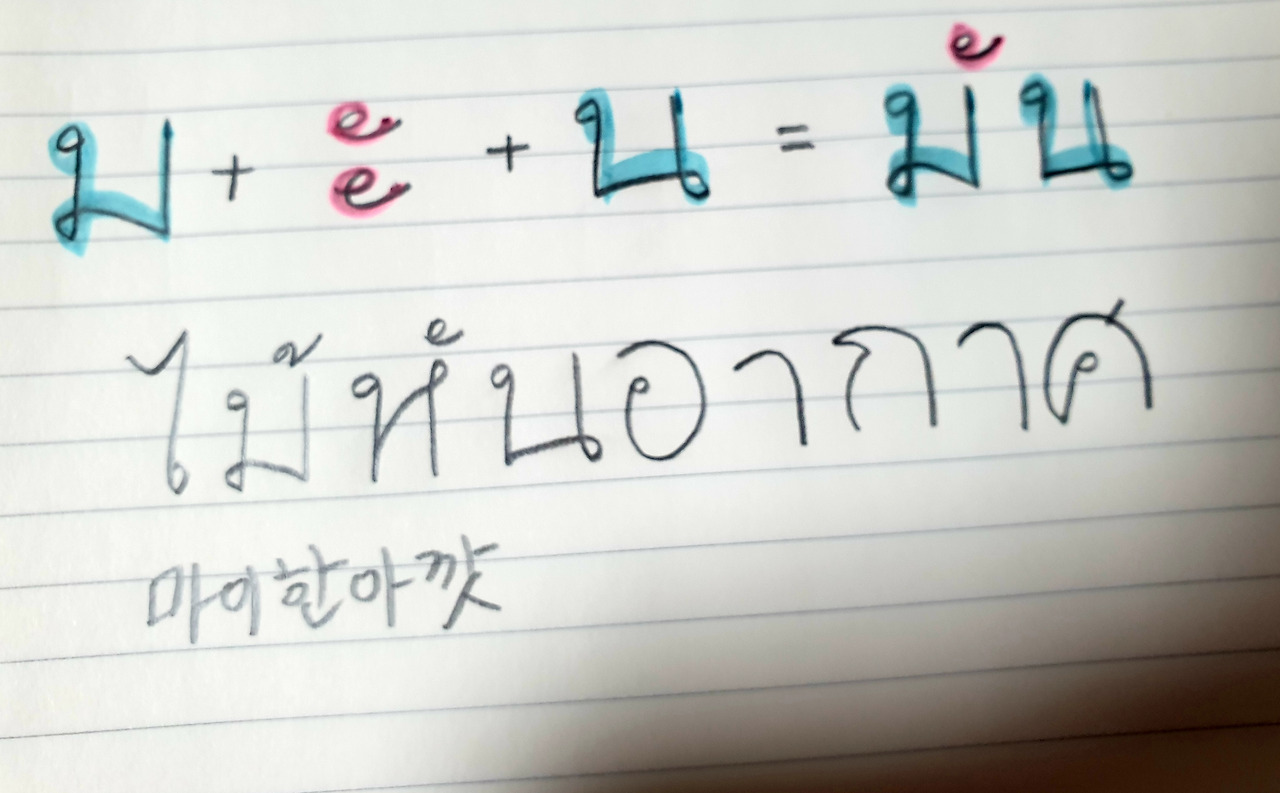 ม + ะ + น = มัน
ไม้หันอากาศ
마이한아깟